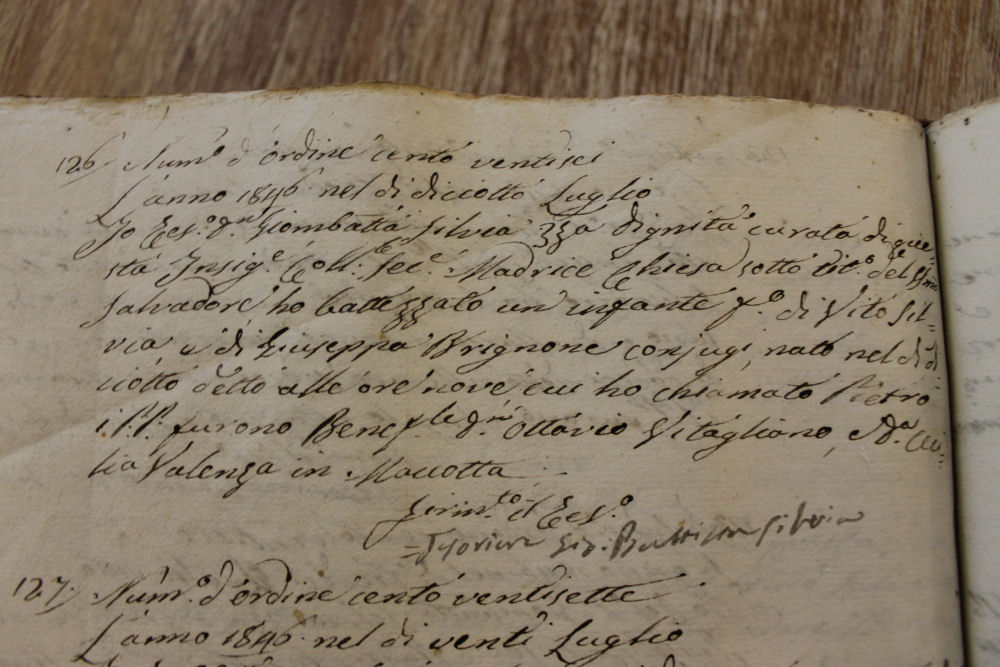 126. Num.º d'ordine cento ventisei
L'anno 1846 nel dì diciotto Luglio
Io D.n Giombatta Silvia 3za dignità curata di que=
sta Insig.e Coll. Madrice Chiesa sotto tit.º del SSmo
Salvadore ho battezzato un infante f.º di Vito Sil=
via, e di Giuseppa Brignone conjugi, nato nel dì di=
ciotto detto alle ore nove cui ho chiamato Pietro
i P.P. furono Benef.le D.n Ottavio Vitagliano, e D.a Ceci=
lia Valenza in Maccotta
Firm.to il
Gio. Battista Silvia
127. Num.º d'ordine cento ventisette
L'anno 1846 nel dì venti Luglio